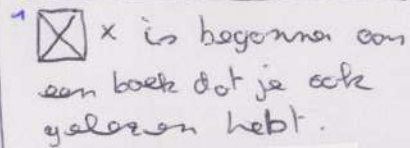 x is begonnen aan
een boek dat je ook
gelezen hebt.